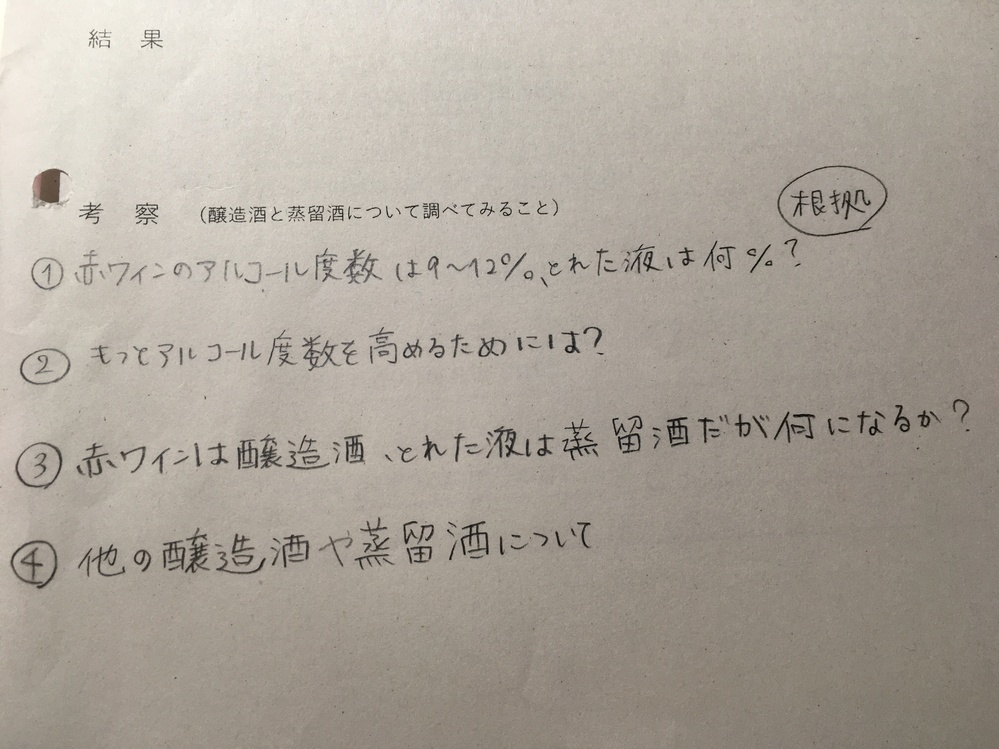 結果
考察 (醸造酒と蒸留酒について調べてみること)
根拠
① 赤ワインのアルコール度数は9~12%、とれた液は何%?
② もっとアルコール度数を高めるためには?
③ 赤ワインは醸造酒、とれた液は蒸留酒だが何になるか?
④ 他の醸造酒や蒸留酒について